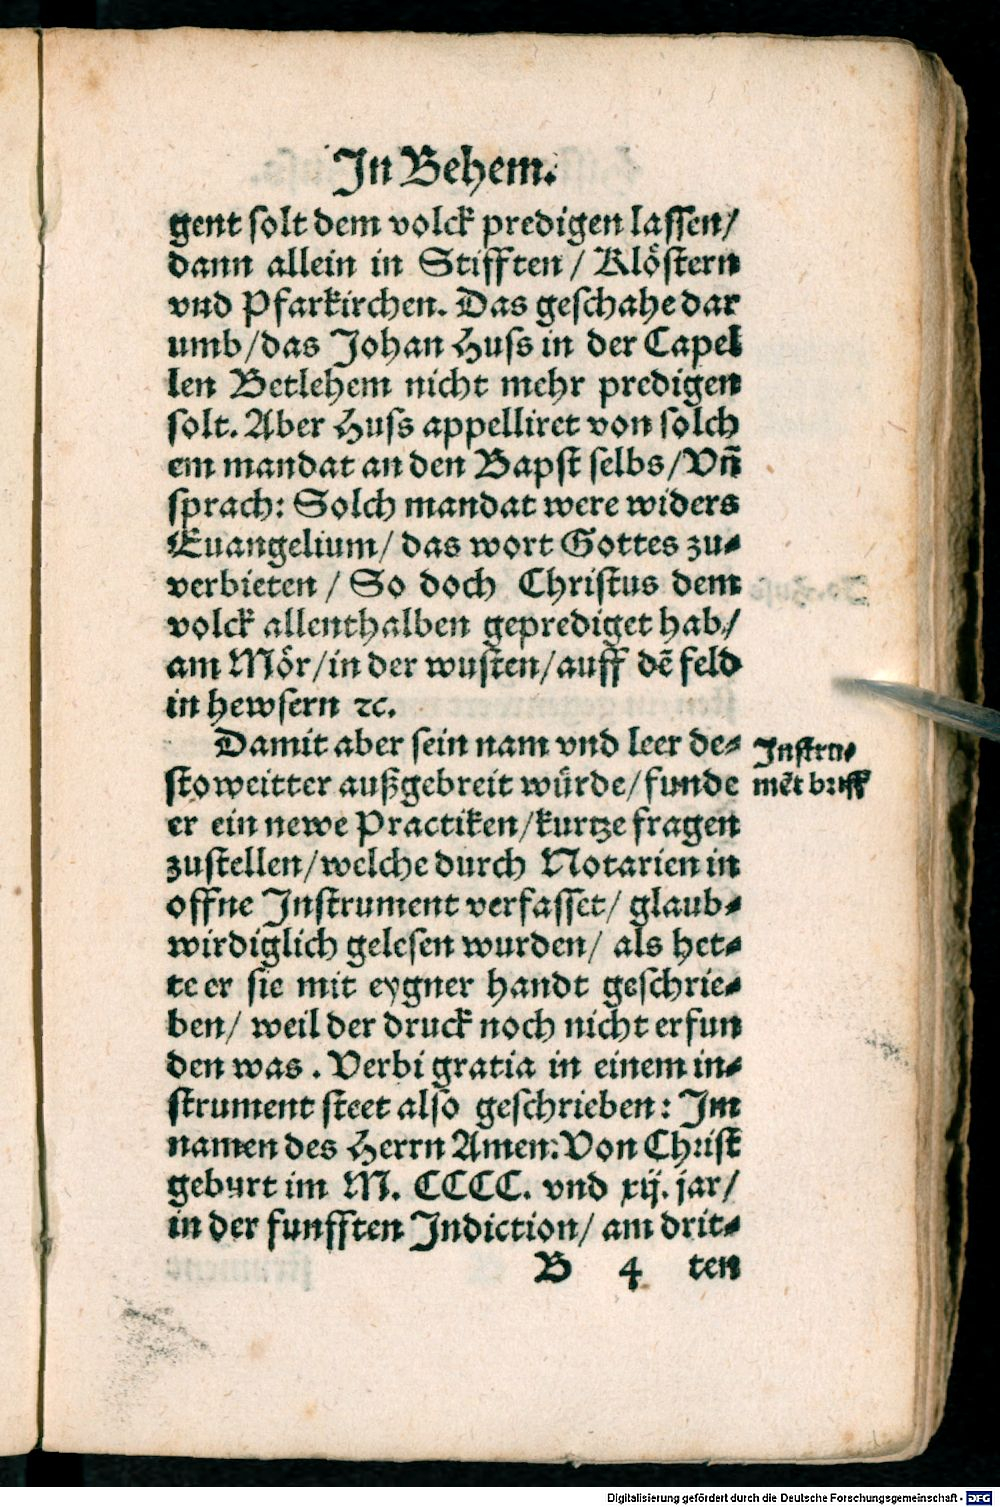 In Behem.
gent solt dem volck predigen lassen/
dann allein in Stifften / Klöstern
vnd Pfarkirchen. Das geschahe dar
umb/das Johan Huss in der Capel
len Betlehem nicht mehr predigen
solt. Aber Huss appelliret von solch
em mandat an den Bapst selbs/Vñ
sprach: Solch mandat were widers
Euangelium/ das wort Gottes zu-
verbieten / So doch Christus dem
volck allenthalben geprediget hab/
am Mör/in der wusten/auff dē feld
in hewsern ꝛc.
Damit aber sein nam vnd leer de-
sto weitter außgebreit würde/funde
er ein newe Practiken/kurtze fragen
zustellen/welche durch Notarien in
offne Instrument verfasset/ glaub-
wirdiglich gelesen wurden/ als het-
te er sie mit eygner handt geschrie-
ben/ weil der druck noch nicht erfun
den was . Verbi gratia in einem in-
strument steet also geschrieben: Im
namen des Herrn Amen: Von Christ
geburt im M. CCCC. vnd xij. jar/
in der funfften Indiction/ am drit-
B 4 ten
Instru-
mēt brieff
Digitalisierung gefördert durch die Deutsche Forschungsgemeinschaft - DFG